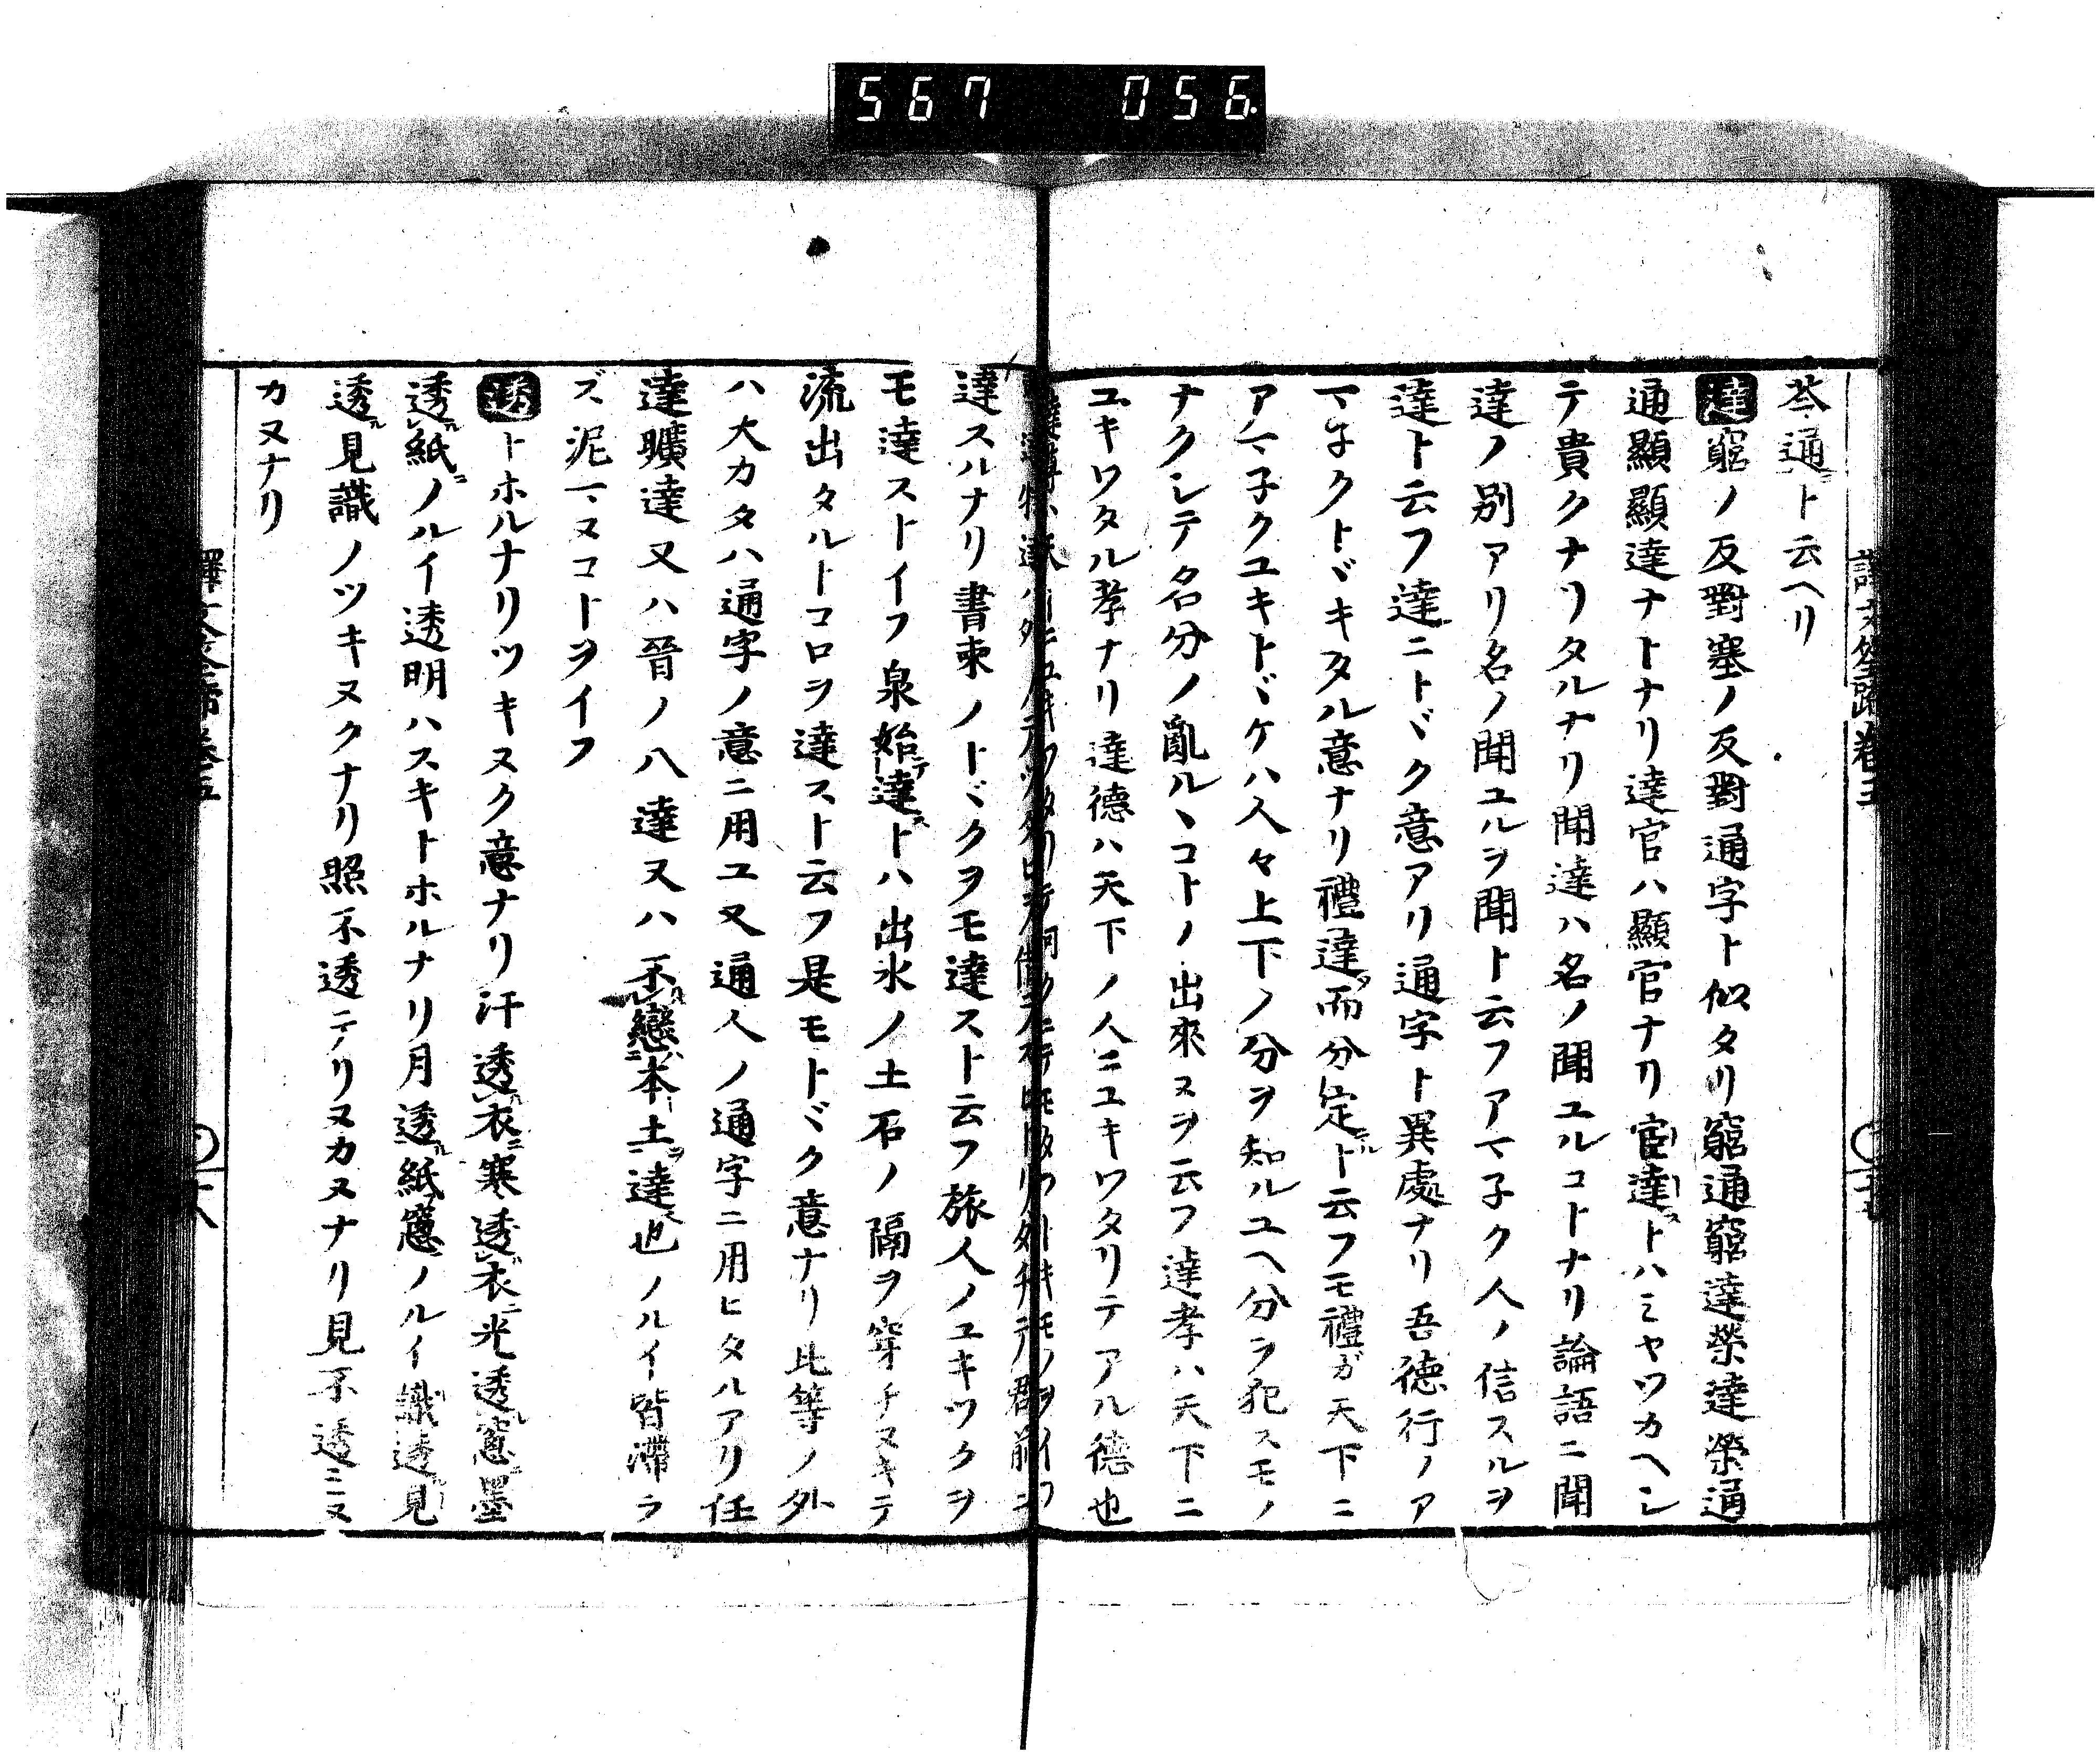 567 056.
譯文筌蹄卷五
苓通ト云ヘリ
達窮ノ反對塞ノ反對通字ト似タリ窮通窮達榮達榮通
通顯顯達ナトナリ達官ハ顯官ナリ宦達トハミヤツカヘシ
テ貴クナリタルナリ聞達ハ名ノ聞ユルコトナリ論語ニ聞
達ノ別アリ名ノ聞ユルヲ聞ト云フアマ子ク人ノ信スルヲ
達ト云フ達ニトヾク意アリ通字ト異處ナリ吾德行ノア
マ子クトヾキタル意ナリ禮達而分定ト云フモ禮ガ天下ニ
アマ子クユキトヾケハ人々上下ノ分ヲ知ルユヘ分ヲ犯スモノ
ナクシテ名分ノ亂ルヽコトノ出來ヌヲ云フ達孝ハ天下ニ
ユキワタル孝ナリ達德ハ天下ノ人ニユキワタリテアル德也
達スルナリ書柬ノトヾクヲモ達スト云フ旅人ノユキツクヲ
モ達ストイフ泉始達トハ出水ノ土石ノ隔ヲ穿チヌキテ
流出タルトコロヲ達スト云フ是モトヾク意ナリ比等ノ外
ハ大カタハ通字ノ意ニ用ユ又通人ノ通字ニ用ヒタルアリ任
達曠達又ハ晉ノ八達又ハ不戀本土達也ノルイ皆滯ラ
ズ泥マヌコトヲイフ
透トホルナリツキヌク意ナリ汗透衣寒透衣光透窻墨
透紙ノルイ透明ハスキトホルナリ月透紙窻ノルイ識透見
透見識ノツキヌクナリ照不透テリヌカヌナリ見不透ミヌ
カヌナリ
譯文筌蹄卷五